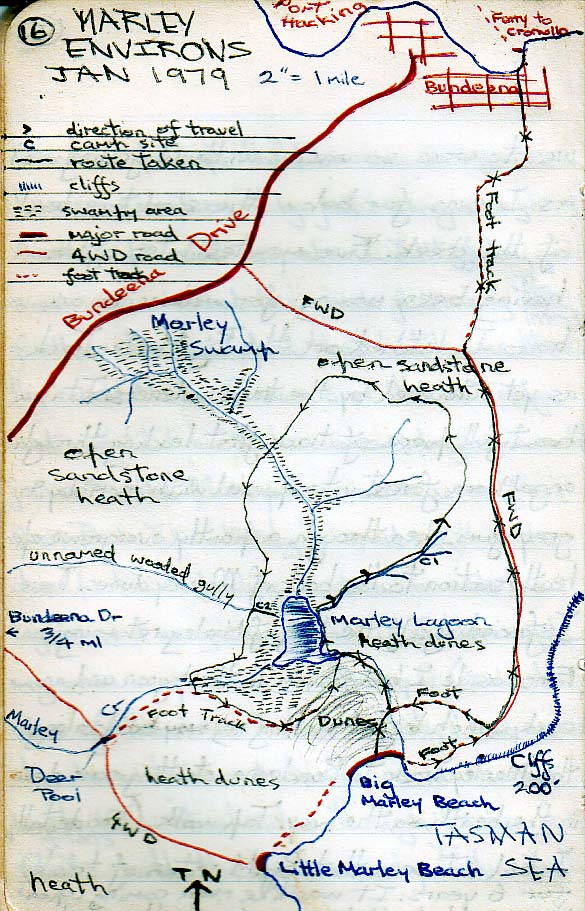 16
MARLEY
ENVIRONS
JAN 1979
2" = 1 mile
Port
Hacking
Ferry to
Cronulla
Bundeena
> direction of travel
c camp site
route taken
cliffs
swampy area
major road
4WD road
foot track
Bundeena Drive
Foot track
FWD
Marley
Swamp
open sandstone
heath
open
sandstone
heath
FWD
unnamed wooded gully
C1
C2
Bundeena Dr
3/4 Ml
Marley Lagoon
heath dunes
Marley
Cr
Foot Track
Dunes
Foot
Foot
Cliffs
200'
Deer
Pool
heath dunes
Big
Marley Beach
4WD
TASMAN
SEA
Little Marley Beach
heath
T N